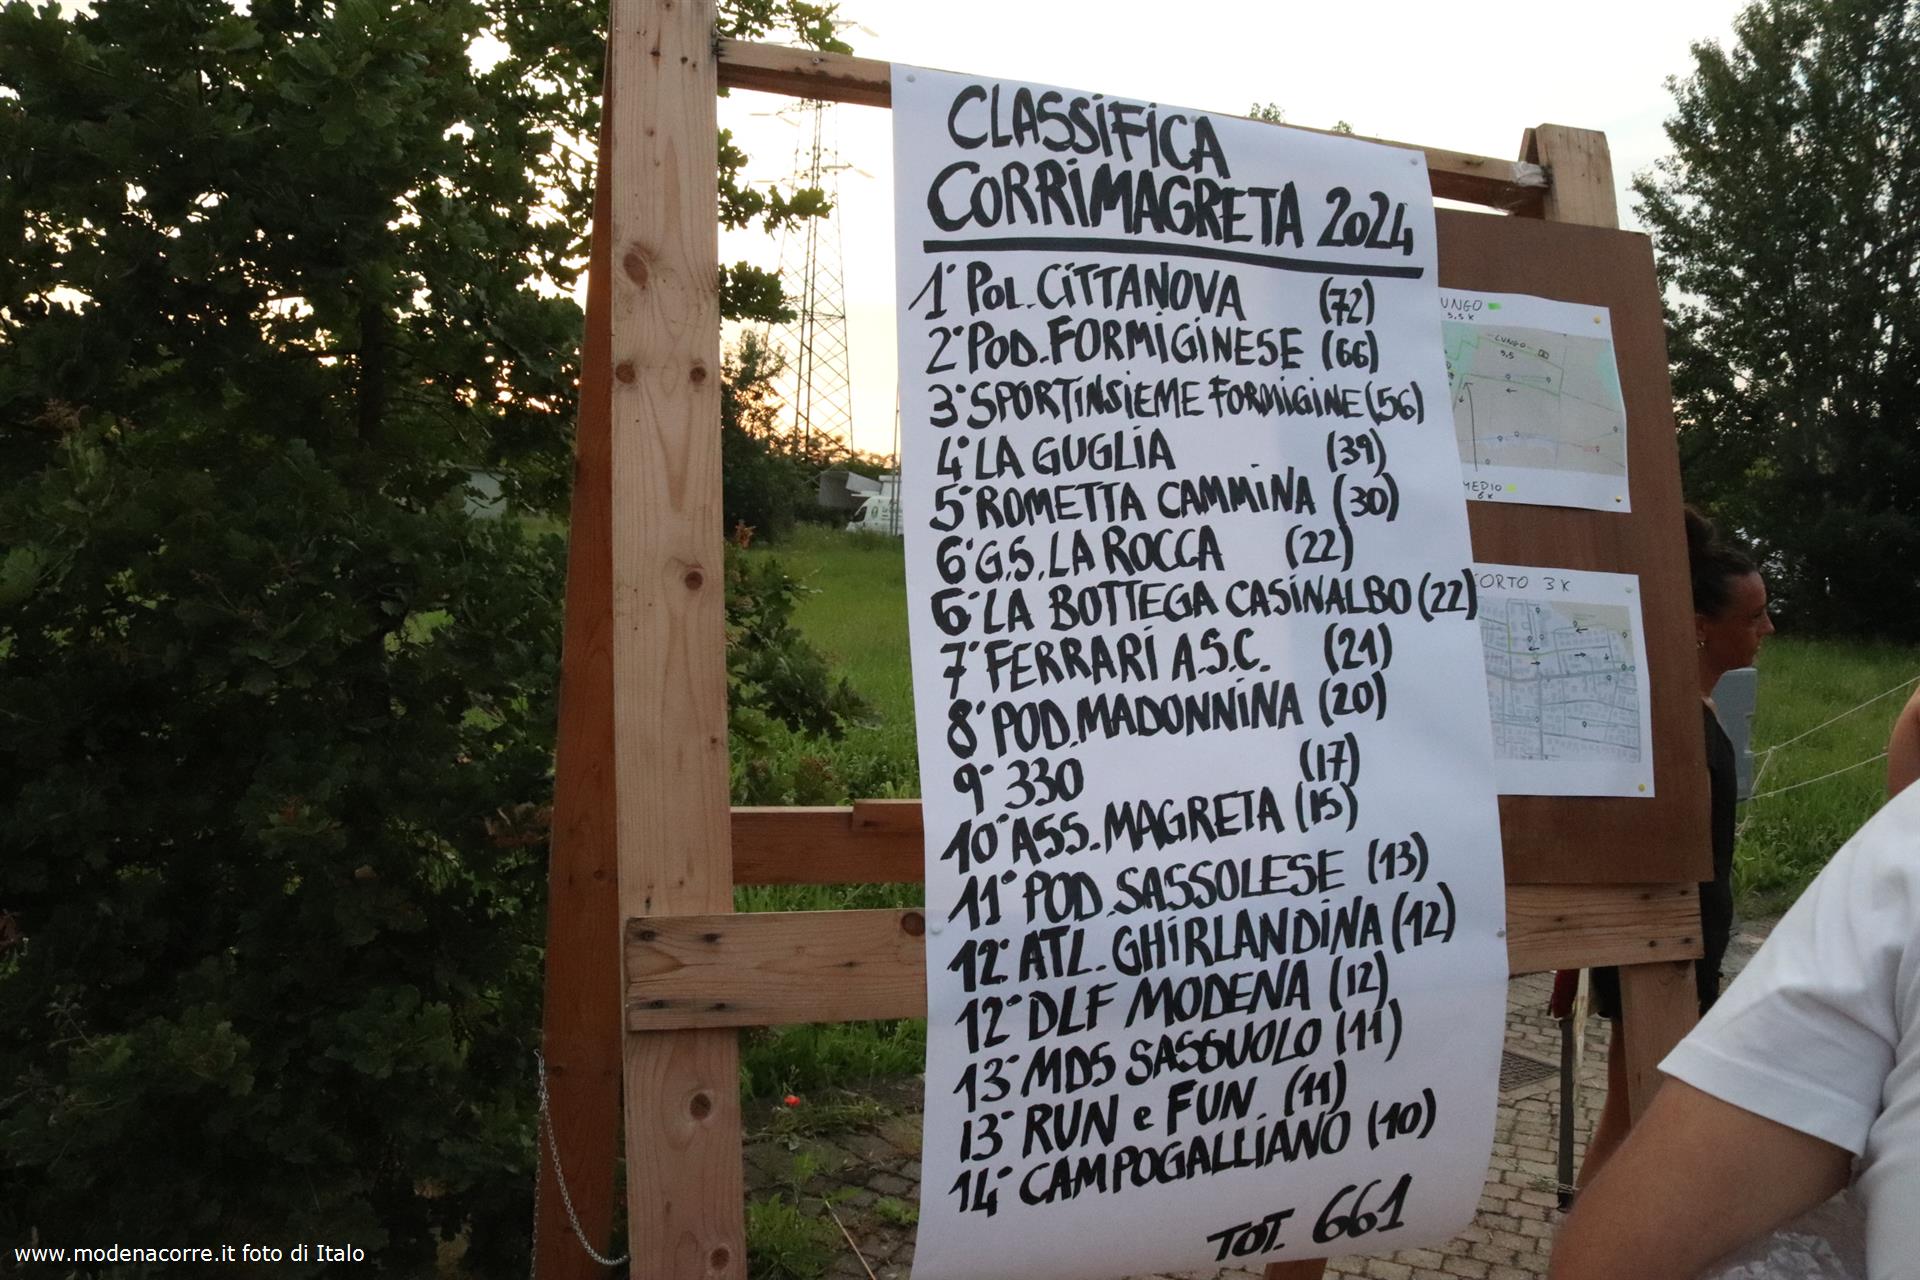 CLASSiFiCA
CORRiMAGRETA 2024
1° POL. CiTTANOVA (72)
2° POD. FORMiGiNESE (66)
3° SPORTiNSiEME FORMiGiNE (56)
4° LA GUGLiA (39)
5° ROMETTA CAMMiNA (30)
6° G.S. LA ROCCA (22)
6° LA BOTTEGA CASiNALBO (22)
7° FERRARi A.S.C. (21)
8° POD. MADONNiNA (20)
9° 330 (17)
10° ASS. MAGRETA (15)
11° POD. SASSOLESE (13)
12° ATL. GHiRLANDiNA (12)
12° DLF MODENA (12)
13° MDS SASSUOLO (11)
13° RUN e FUN (11)
14° CAMPOGALLiANO (10)
TOT. 661
UNGO
5.5 K
LUNGO
5,5
MEDIO
6 K
CORTO 3 K
www.modenacorre.it foto di Italo